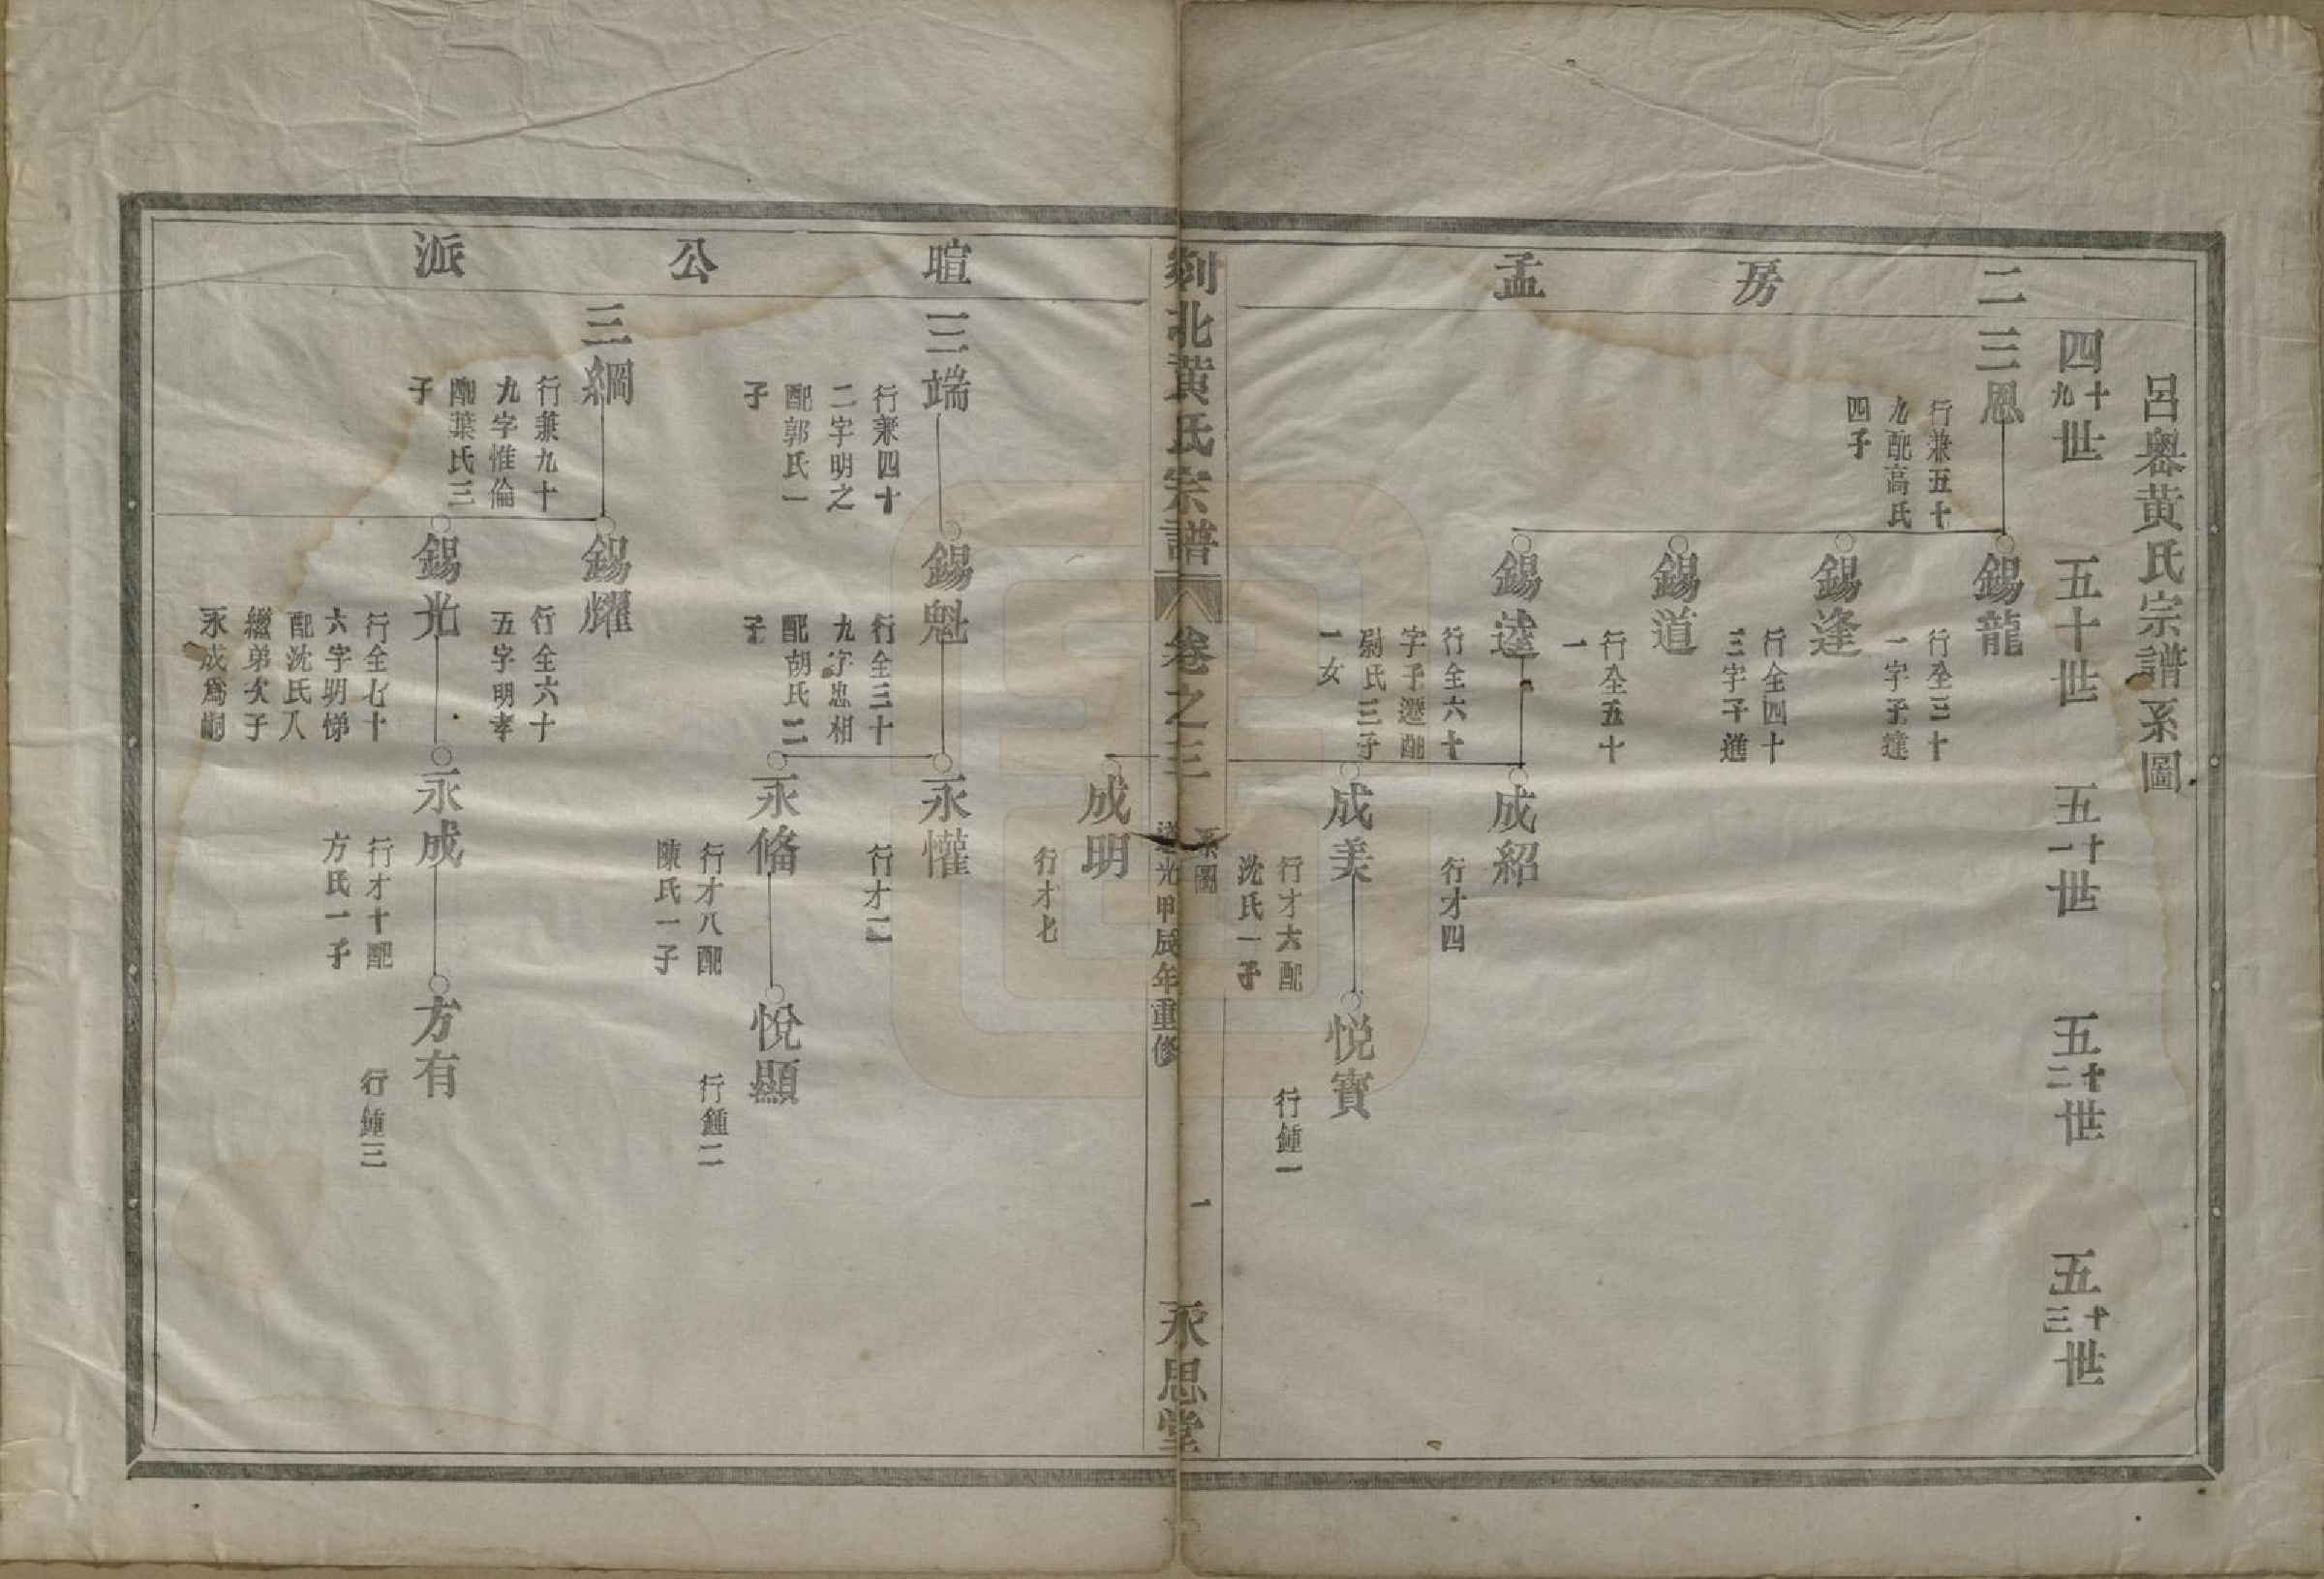 呂嶴黄氏宗譜系圖
四十九世
五十世
五十一世
五十二世
五十三世
二房孟
三恩
行兼五十
九配高氏
四子
錫龍
行全三十
一字子達
錫逢
行全四十
三字子進
錫道
行全五十
一
錫逵
行全六十
字子遷配
尉氏三子
一女
成紹
行才四
成美
行才六配
沈氏一子
悦寶
行鍾一
剡北黄氏宗譜
卷之三
系圖
道光甲辰年重修
一
永思堂
暄公派
成明
行才七
三端
行兼四十
二字明之
配郭氏一
子
錫魁
行全三十
九字忠相
配胡氏二
子
永懽
行才二
永脩
行才八配
陳氏一子
悅顯
行鍾二
三綱
行兼九十
九字惟倫
配葉氏三
子
錫耀
行全六十
五字明孝
錫光
行全七十
六字明悌
配沈氏入
繼弟次子
永成爲嗣
永成
行才十配
方氏一子
方有
行鍾三